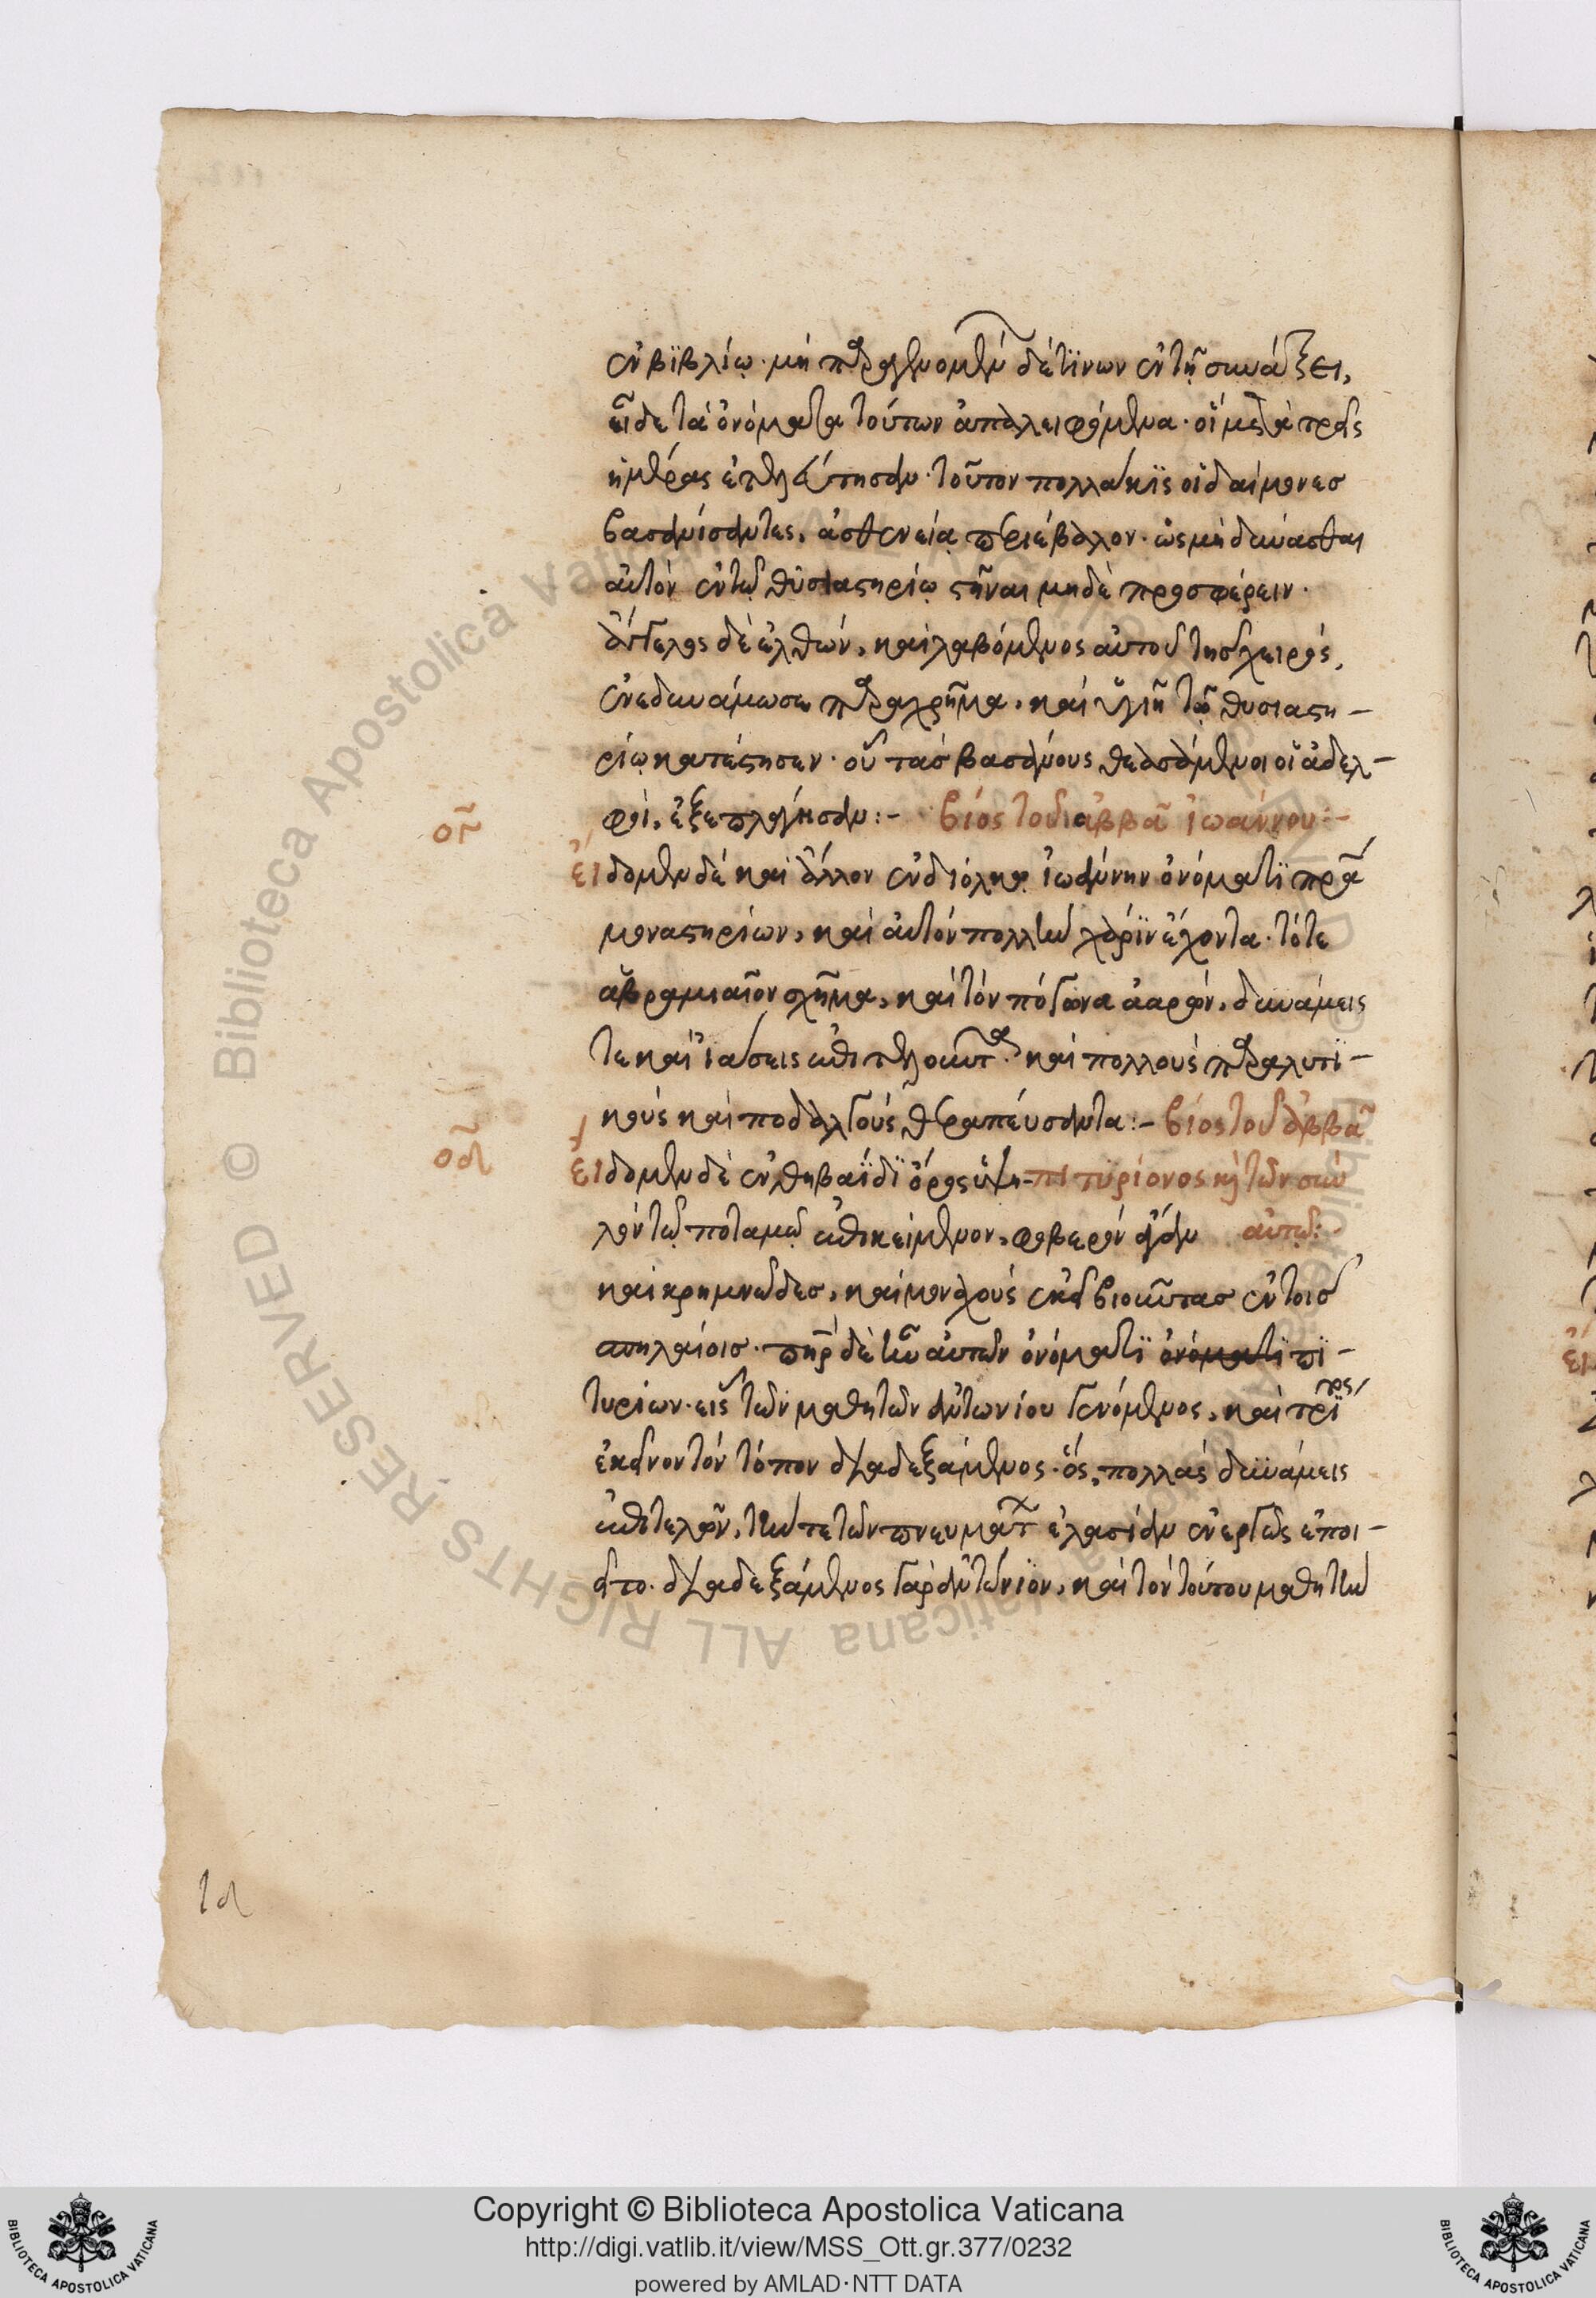 ἐν βϊβλίω· μὴ παραγενομένων δέ τϊνων ἐν τῆ συνάξει,
εἶδε τὰ ὀνόματα τούτων ἀπαλειφόμενα· οἳ μετὰ τρεῖς
ἡμέρας ἐτελεύτησαν· τοῦτον πολλάκϊς οἱ δαίμονεσ
βασανίσαντες, ἀσθενεία περιέβαλον· ὡς μὴ δύνασθαι
αὐτὸν ἐν τῶ θϋσιαστηρίω στῆναι μηδὲ προσφέρειν·
ἄγγελος δὲ ἐλθών, καὶ λαβόμενος αὐτοῦ τῆσ χειρός,
ἐνεδυνάμωσε παραχρῆμα, καὶ ὑγιῆ τῶ θυσιαστη-
ρίω κατέστησεν· οὗ τὰσ βασάνους θεασάμενοι οἱ ἀδελ-
φοί, ἐξεπλάγησαν:- βίος τοῦ ἀββᾶ ἰωάννου:-
ογ
εἴδομεν δὲ καὶ ἄλλον ἐν διόλκω ἰωάννην ὀνόματϊ πρα
μοναστηρίων, καὶ αὐτὸν πολλὴν χάρϊν ἔχοντα· τότε
ἀβραμιαῖον σχῆμα, καὶ τὸν πόγωνα ἀαρών, δυνάμεις
τε καὶ ἰάσεις ἐπιτελοῦντα· καὶ πολλοὺς παραλυτϊ-
κοὺς καὶ ποδαλγοὺς θεραπεύσαντα:- βίος τοῦ ἀββᾶ
οδ
εἴδομεν δὲ ἐν θηβαΐδϊ ὄρος ὑψη- πιτυρίονος κὶ τῶν σὺν
λὸν τῶ ποταμῶ ἐπικείμενον, φοβερὸν λίαν αὐτῶ:
καὶ κρημνῶδεσ, καὶ μοναχοὺς ἐκεῖ βιοῦντασ ἐν τοῖσ
σπηλαίοισ· πηρ δὲ ἦν αὐτῶν ὀνόματϊ ὀνόματϊ πϊ-
τυρίων· εἷς τῶν μαθητῶν ἀντωνίου γενόμενος, καὶ τρϊτος
ἐκεῖνον τὸν τόπον διαδεξάμενος· ὃς, πολλὰς δυνάμεις
ἐπιτελῶν, τήν τε τῶν πνευμάτ ἐλασίαν ἐνεργῶς ἐποι-
εῖτο· διαδεξάμενος γὰρ ἀντώνϊον, καὶ τὸν τούτου μαθητὴν
ιδ
Copyright © Biblioteca Apostolica Vaticana
http://digi.vatlib.it/view/MSS_Ott.gr.377/0232
powered by AMLAD·NTT DATA